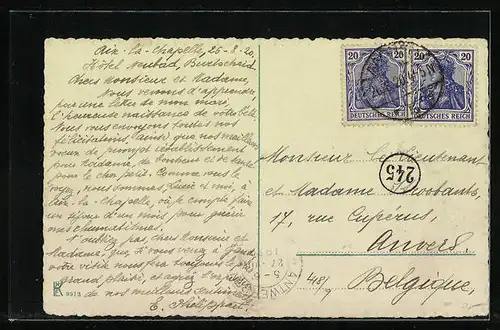 Aix-la-Chapelle, 25-8-20
Hôtel Neubad, Burtscheid
Chers Monsieur et Madame,
Nous venons d'apprendre,
par une lettre de mon mari,
l'heureuse naissance de votre bébé.
Nous vous envoyons toutes nos
félicitations, ainsi que nos meilleurs
vœux de prompt rétablissement
pour Madame, de bonheur et de santé
pour le cher petit. Comme vous le
voyez, nous sommes, Lucie et moi, à
Aix-la-Chapelle, où je compte faire
un séjour d'un mois pour guérir
mes rhumatismes.
N'oubliez pas, chers Monsieur et
Madame, que vous venez à Gand,
votre visite nous fera toujours
grand plaisir, et agréez l'
de nos meilleurs
E. Philippart
9512
20 20
20 20
DEUTSCHES REICH
DEUTSCHES REICH
245
Monsieur le Lieutenant
et Madame
17, rue Cupérus,
Anvers.
Belgique,